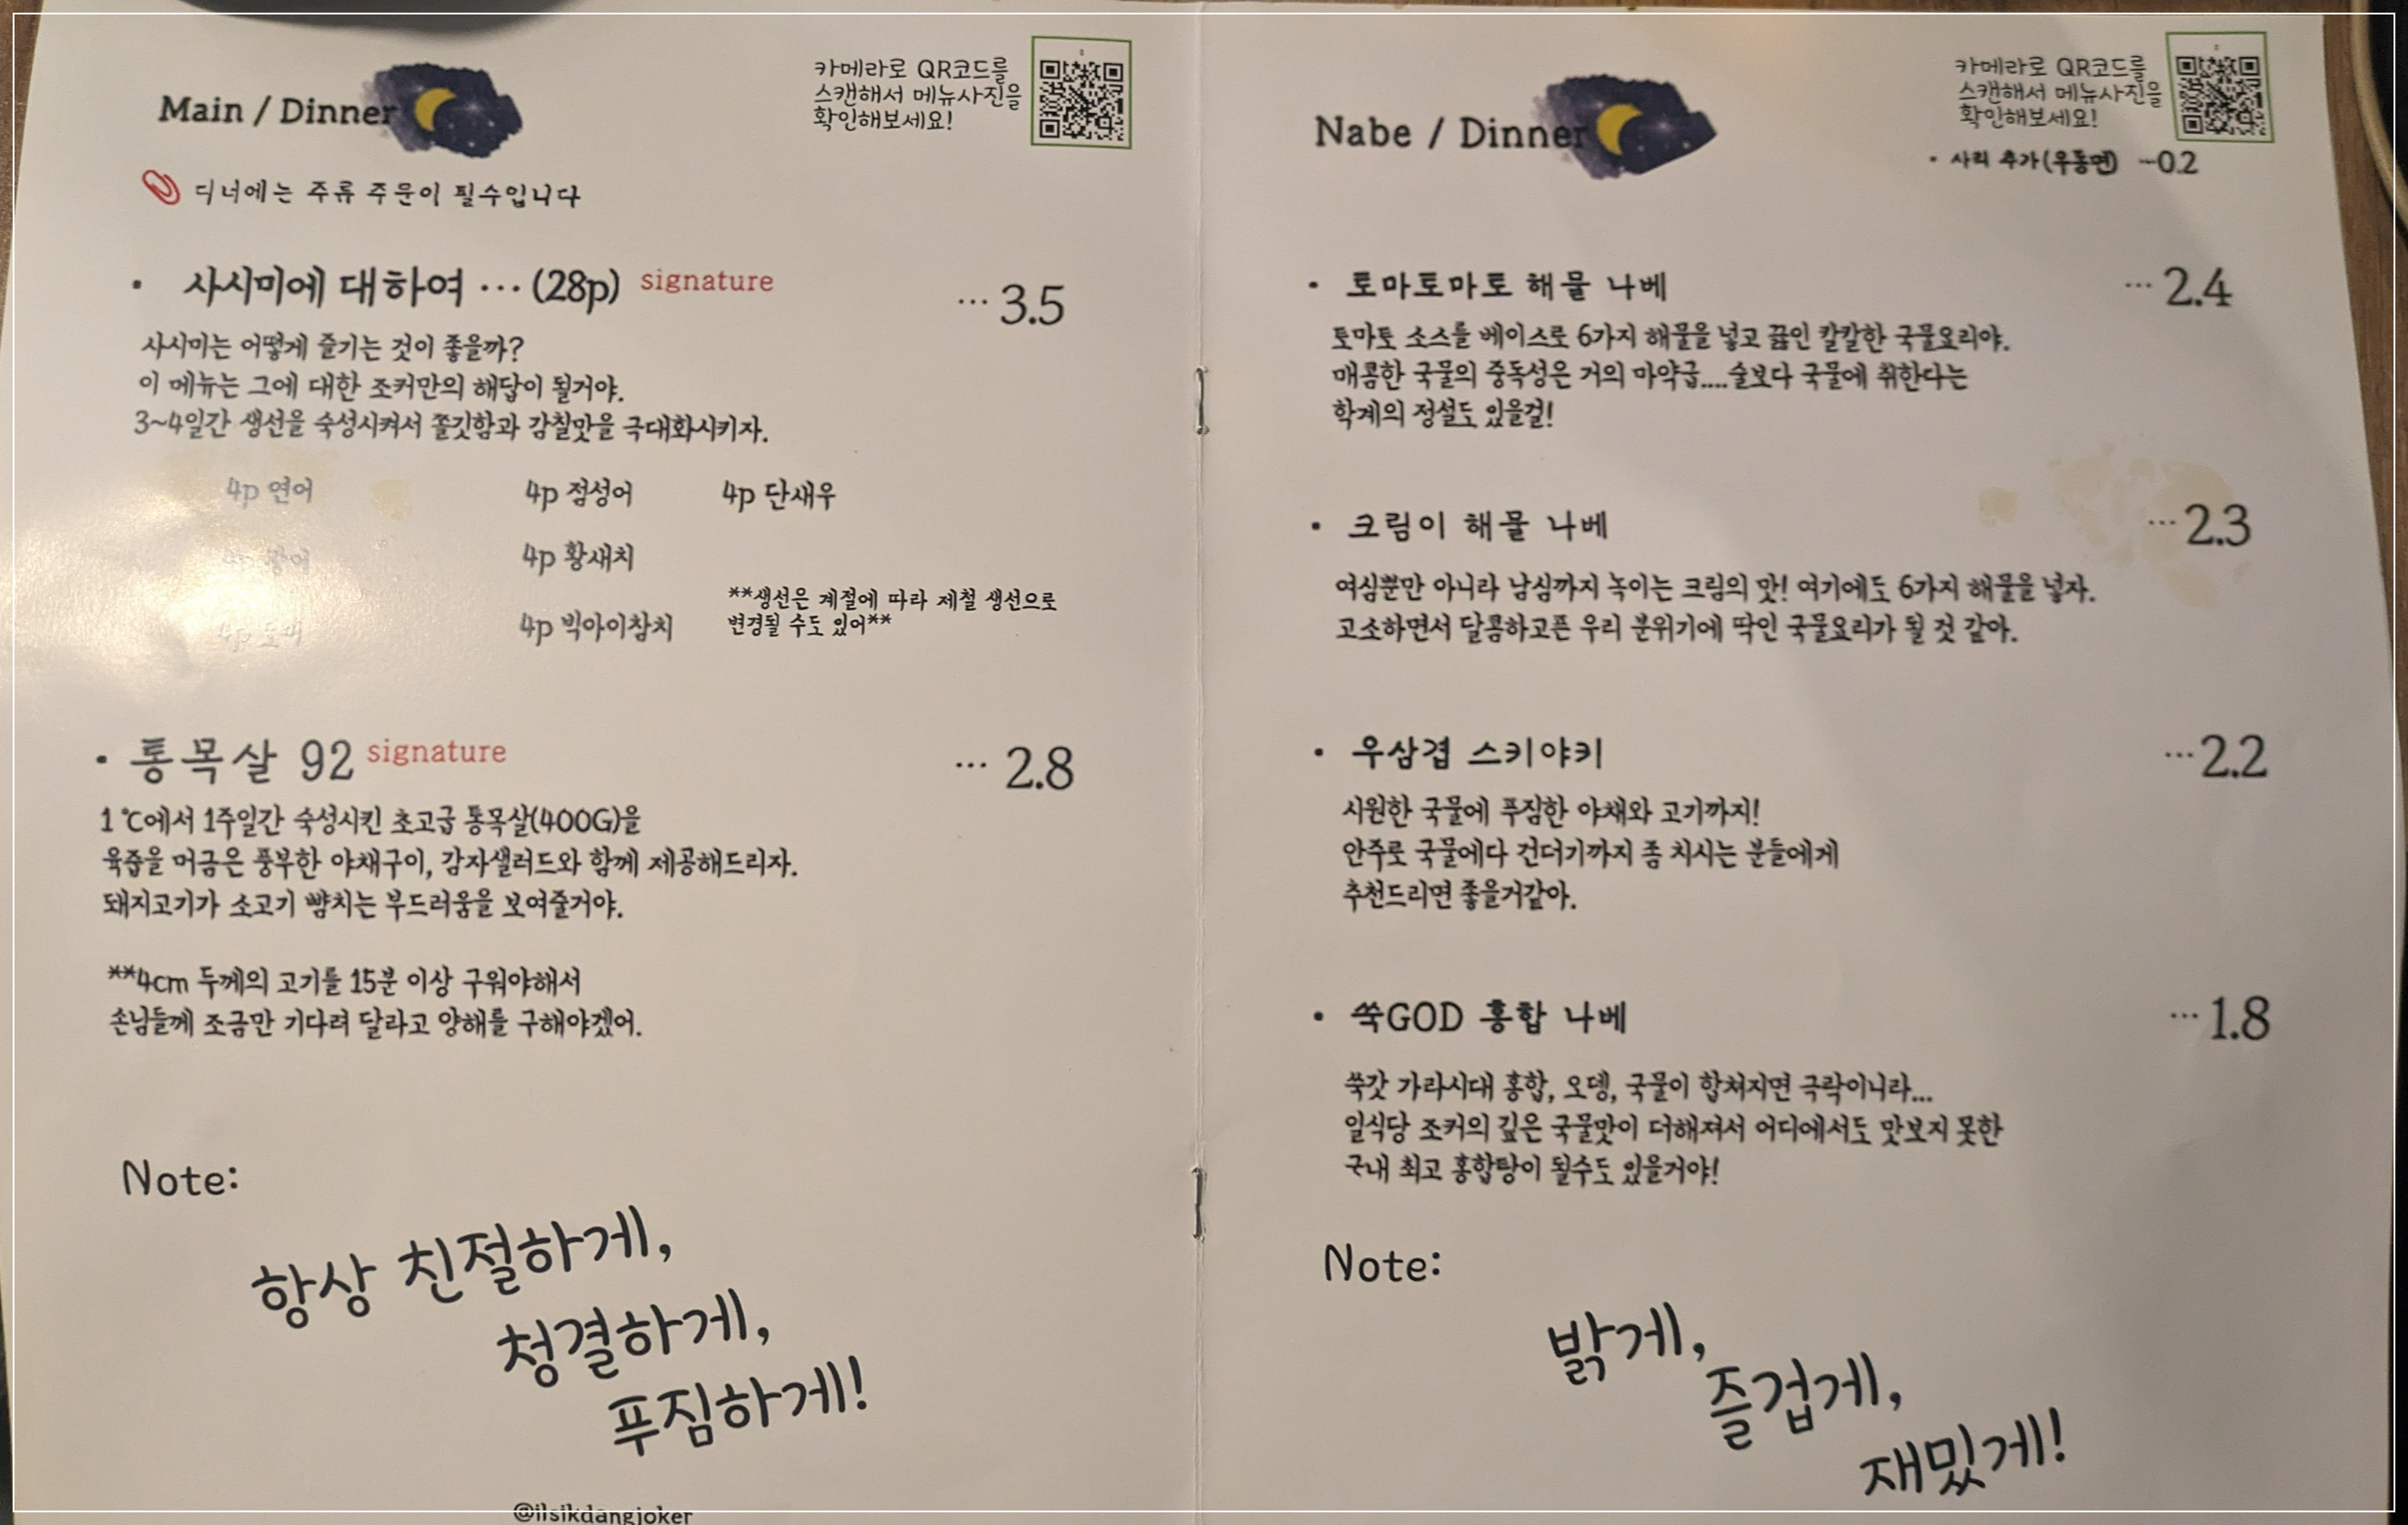 Main / Dinner
카메라로 QR코드를
스캔해서 메뉴사진을
확인해보세요!
디너에는 주류 주문이 필수입니다
• 사시미에 대하여 … (28p) signature … 3.5
사시미는 어떻게 즐기는 것이 좋을까?
이 메뉴는 그에 대한 조커만의 해답이 될거야.
3~4일간 생선을 숙성시켜서 쫄깃함과 감칠맛을 극대화시키자.
4p 연어 4p 점성어 4p 단새우
4p 광어 4p 황새치
4p 도미 4p 빅아이참치
**생선은 계절에 따라 제철 생선으로
변경될 수도 있어**
• 통목살 92 signature … 2.8
1℃에서 1주일간 숙성시킨 초고급 통목살(400G)을
육즙을 머금은 풍부한 야채구이, 감자샐러드와 함께 제공해드리자.
돼지고기가 소고기 뺨치는 부드러움을 보여줄거야.
**4cm 두께의 고기를 15분 이상 구워야해서
손님들께 조금만 기다려 달라고 양해를 구해야겠어.
Note:
항상 친절하게,
청결하게,
푸짐하게!
@ilsikdangjoker
Nabe / Dinner
카메라로 QR코드를
스캔해서 메뉴사진을
확인해보세요!
• 사리 추가(우동면) …0.2
• 토마토마토 해물 나베 … 2.4
토마토 소스를 베이스로 6가지 해물을 넣고 끓인 칼칼한 국물요리야.
매콤한 국물의 중독성은 거의 마약급....술보다 국물에 취한다는
학계의 정설도 있을걸!
• 크림이 해물 나베 … 2.3
여심뿐만 아니라 남심까지 녹이는 크림의 맛! 여기에도 6가지 해물을 넣자.
고소하면서 달콤하고픈 우리 분위기에 딱인 국물요리가 될 것 같아.
• 우삼겹 스키야키 … 2.2
시원한 국물에 푸짐한 야채와 고기까지!
안주로 국물에다 건더기까지 좀 치시는 분들에게
추천드리면 좋을거같아.
• 쑥GOD 홍합 나베 … 1.8
쑥갓 가라시대 홍합, 오뎅, 국물이 합쳐지면 극락이니라...
일식당 조커의 깊은 국물맛이 더해져서 어디에서도 맛보지 못한
국내 최고 홍합탕이 될수도 있을거야!
Note:
밝게,
즐겁게,
재밌게!